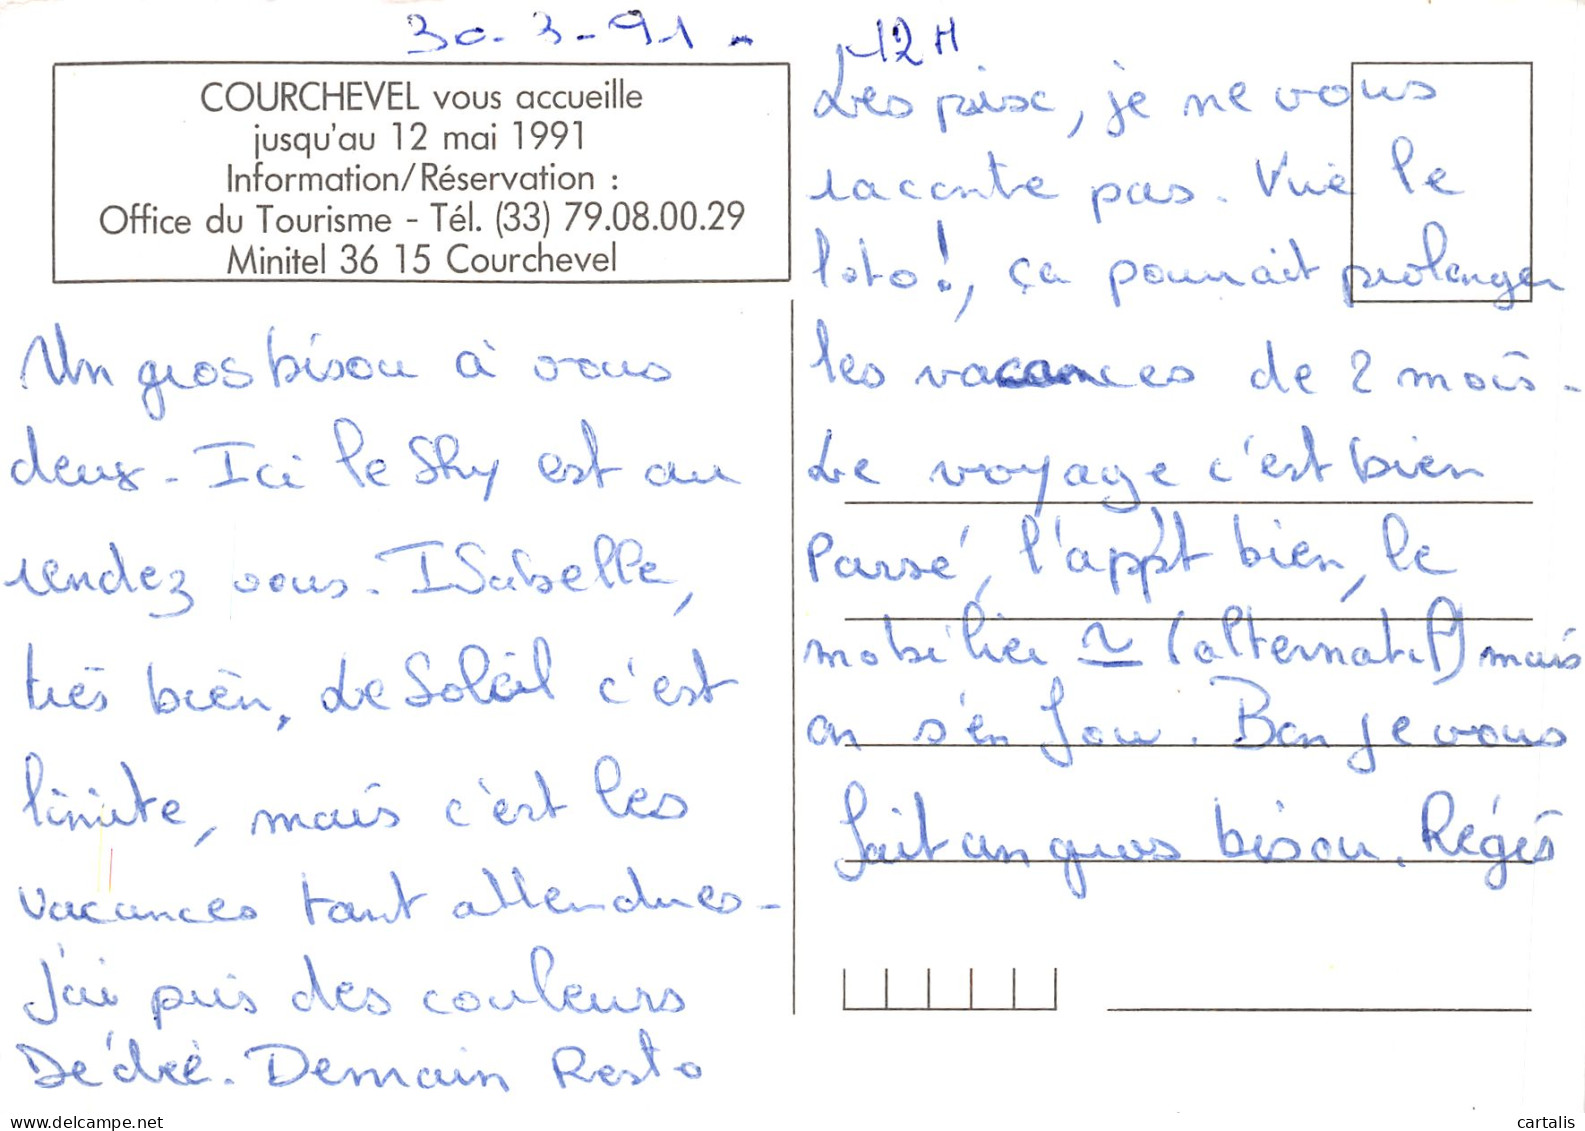 30-3-91- 12H
COURCHEVEL vous accueille
jusqu'au 12 mai 1991
Information/Réservation :
Office du Tourisme - Tél. (33) 79.08.00.29
Minitel 36 15 Courchevel
Un gros bisou à vous
deux - Ici le Sky est au
rendez vous. ISabelle,
très bien, Le Soleil c'est
limite, mais c'est les
vacances tant attendues -
J'ai pris des couleurs
Dédré. Demain Resto
Les prix, je ne vous
raconte pas. Vive le
loto!, ça pourrait prolonger
les vacances de 2 mois -
Le voyage c'est bien
Passé, l'appt bien, le
mobilier ~ (alternatif) mais
on s'en fou. Bon je vous
fait un gros bisou. Régis
www.delcampe.net
cartalis